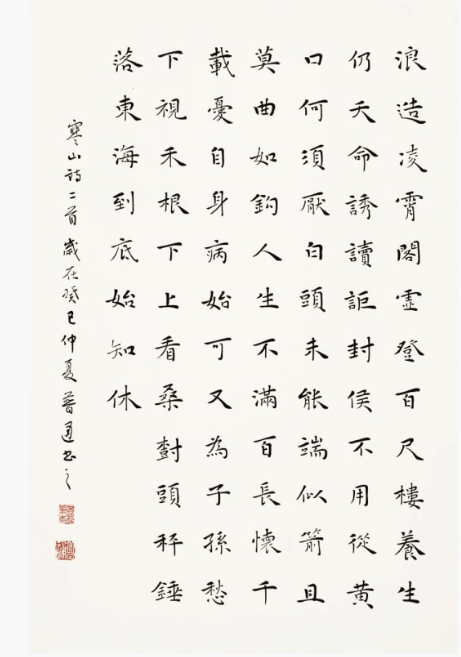 浪造凌霄閣虛登百尺樓養生
仍夭命誘讀詎封侯不用從黃
口何須厭白頭未能端似箭且
莫曲如鈎人生不滿百長懷千
載憂自身病始可又為子孫愁
下視禾根下上看桑樹頭秤錘
落東海到底始知休
寒山詩二首歲在癸巳仲夏普書之